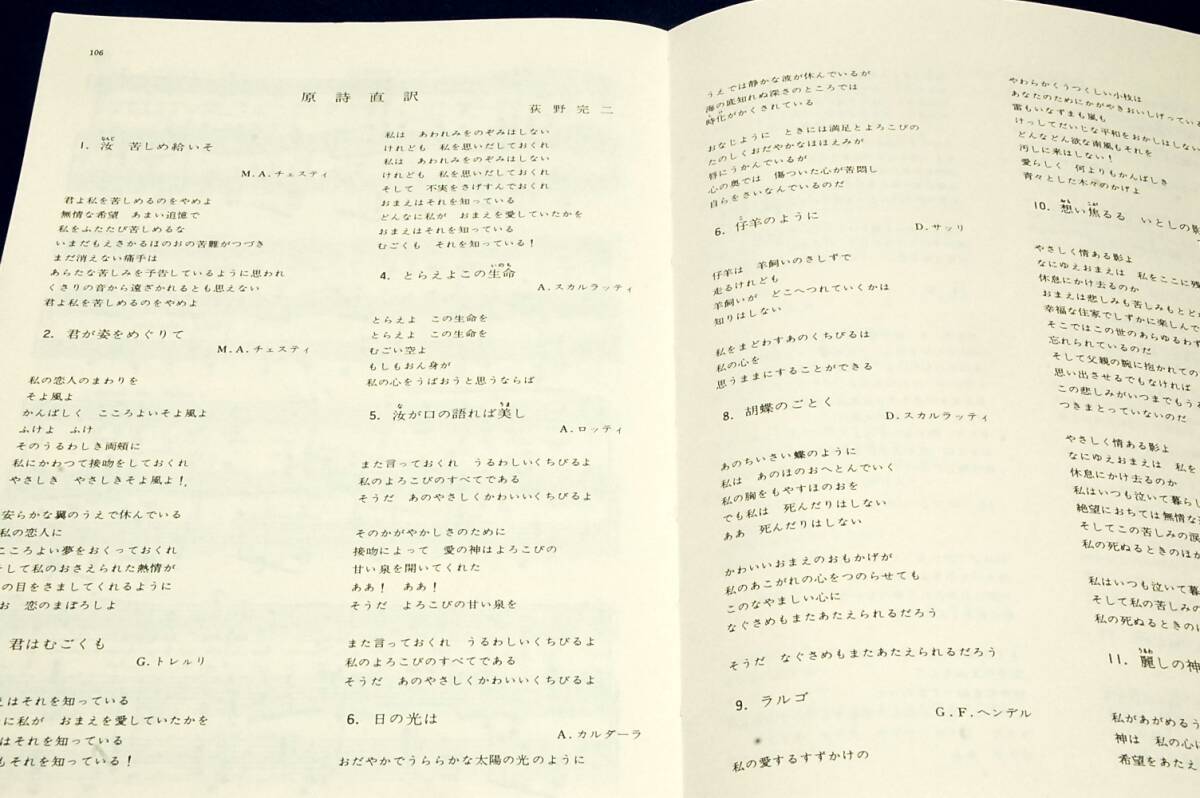 106
原詩直訳
荻野完二
1. 汝 苦しめ給いそ
M.A.チェスティ
君よ私を苦しめるのをやめよ
無情な希望 あまい追憶で
私をふたたび苦しめるな
いまだもえさかるほのおの苦難がつづき
まだ消えない痛手は
あらたな苦しみを予告しているように思われ
くさりの音から遠ざかれるとも思えない
君よ私を苦しめるのをやめよ
2. 君が姿をめぐりて
M.A.チェスティ
私の恋人のまわりを
そよ風よ
かんばしく こころよいそよ風よ
ふけよ ふけ
そのうるわしき両頬に
私にかわつて接吻をしておくれ
やさしき やさしきそよ風よ!
安らかな翼のうえで休んでいる
私の恋人に
こころよい夢をおくっておくれ
そして私のおさえられた熱情が
の目をさましてくれるように
お 恋のまぼろしよ
君はむごくも
G.トレルリ
はそれを知っている
に私が おまえを愛していたかを
はそれを知っている
もそれを知っている!
私は あわれみをのぞみはしない
けれども 私を思いだしておくれ
私は あわれみをのぞみはしない
けれども 私を思いだしておくれ
そして 不実をさげすんでおくれ
おまえはそれを知っている
どんなに私が おまえを愛していたかを
おまえはそれを知っている
むごくも それを知っている!
4. とらえよこの生命
A.スカルラッティ
とらえよ この生命を
とらえよ この生命を
むごい空よ
もしもおん身が
私の心をうばおうと思うならば
5. 汝が口の語れば美し
A.ロッティ
また言っておくれ うるわしいくちびるよ
私のよろこびのすべてである
そうだ あのやさしくかわいいくちびるよ
そのかがやかしさのために
接吻によって 愛の神はよろこびの
甘い泉を開いてくれた
ああ! ああ!
そうだ よろこびの甘い泉を
また言っておくれ うるわしいくちびるよ
私のよろこびのすべてである
そうだ あのやさしくかわいいくちびるよ
6. 日の光は
A.カルダーラ
おだやかでうららかな太陽の光のように
うえでは静かな波が休んでいるが
海の底知れぬ深さのところでは
時化がかくされている
おなじように ときには満足とよろこびの
たのしくおだやかなほほえみが
唇にうかんでいるが
心の奥では 傷ついた心が苦悶し
自らをさいなんでいるのだ
6. 仔羊のように
D.サッリ
仔羊は 羊飼いのさしずで
走るけれども
羊飼いが どこへつれていくかは
知りはしない
私をまどわすあのくちびるは
私の心を
思うままにすることができる
8. 胡蝶のごとく
D.スカルラッティ
あのちいさい蝶のように
私は あのほのおへとんでいく
私の胸をもやすほのおを
でも私は 死んだりはしない
ああ 死んだりはしない
かわいいおまえのおもかげが
私のあこがれの心をつのらせても
このなやましい心に
なぐさめもまたあたえられるだろう
そうだ なぐさめもまたあたえられるだろう
9. ラルゴ
G.F.ヘンデル
私の愛するすずかけの
やわらかくうつくしい小枝は
あなたのためにかがやきおいしげっている
雷もいなずまも嵐も
けっしてだいじな平和をおかしはしない
どんなどん欲な南風もそれを
汚しに来はしない!
愛らしく 何よりもかんばしき
青々とした木々のかげよ
10. 想い焦るる いとしの影
やさしく情ある影よ
なにゆえおまえは 私をここに残
休息にかけ去るのか
おまえは悲しみも苦しみもとどか
幸福な住家でしずかに楽しんで
そこではこの世のあらゆるわず
忘れられているのだ
そして父親の腕に抱かれての
思い出させるでもなければ
この悲しみがいつまでもう
つきまとっていないのだ
やさしく情ある影よ
なにゆえおまえは 私を
休息にかけ去るのか
私はいつも泣いて暮らし
絶望におちては無情な
そしてこの苦しみの涙
私の死ぬるときのほか
私はいつも泣いて暮
そして私の苦しみの
私の死ぬるときのに
11. 麗しの神
私があがめるう
神は 私の心に
希望をあたえ